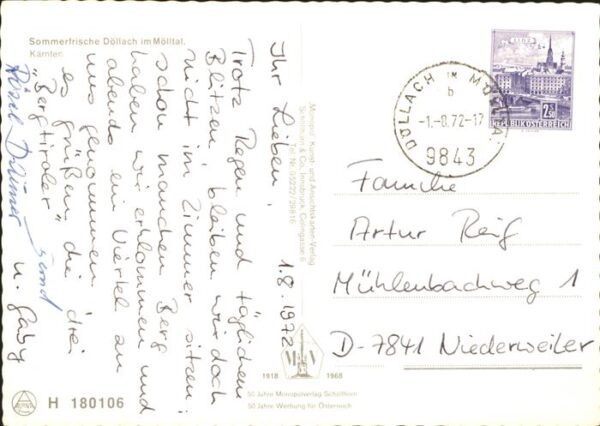 Sommerfrische Döllach im Mölltal,
Kärnten
Ihr Lieben, 1.8.1972
Trotz Regen und täglichem
Blitzen, bleiben wir doch
nicht im Zimmer sitzen;
schon manchen Berg
haben wir erklommen und
abends ein Viertel zu
uns genommen.
es grüßen die drei
"Bergtiroler"
und
u. Gaby
Monopol Kunst- und Ansichtskarten-Verlag
Schöllhorn & Co, Innsbruck, Colingasse 6
Tel Nr. 05222/29816
1918 1968
50 Jahre Monopolverlag Schöllhorn
50 Jahre Werbung für Österreich
H 180106
LINZ
2.50
REPUBLIK ÖSTERREICH
DÖLLACH IM MÖLLTAL
b
-1.-8.72-17
9843
Familie
Artur Reif
Mühlenbachweg 1
D-7841 Niederweiler